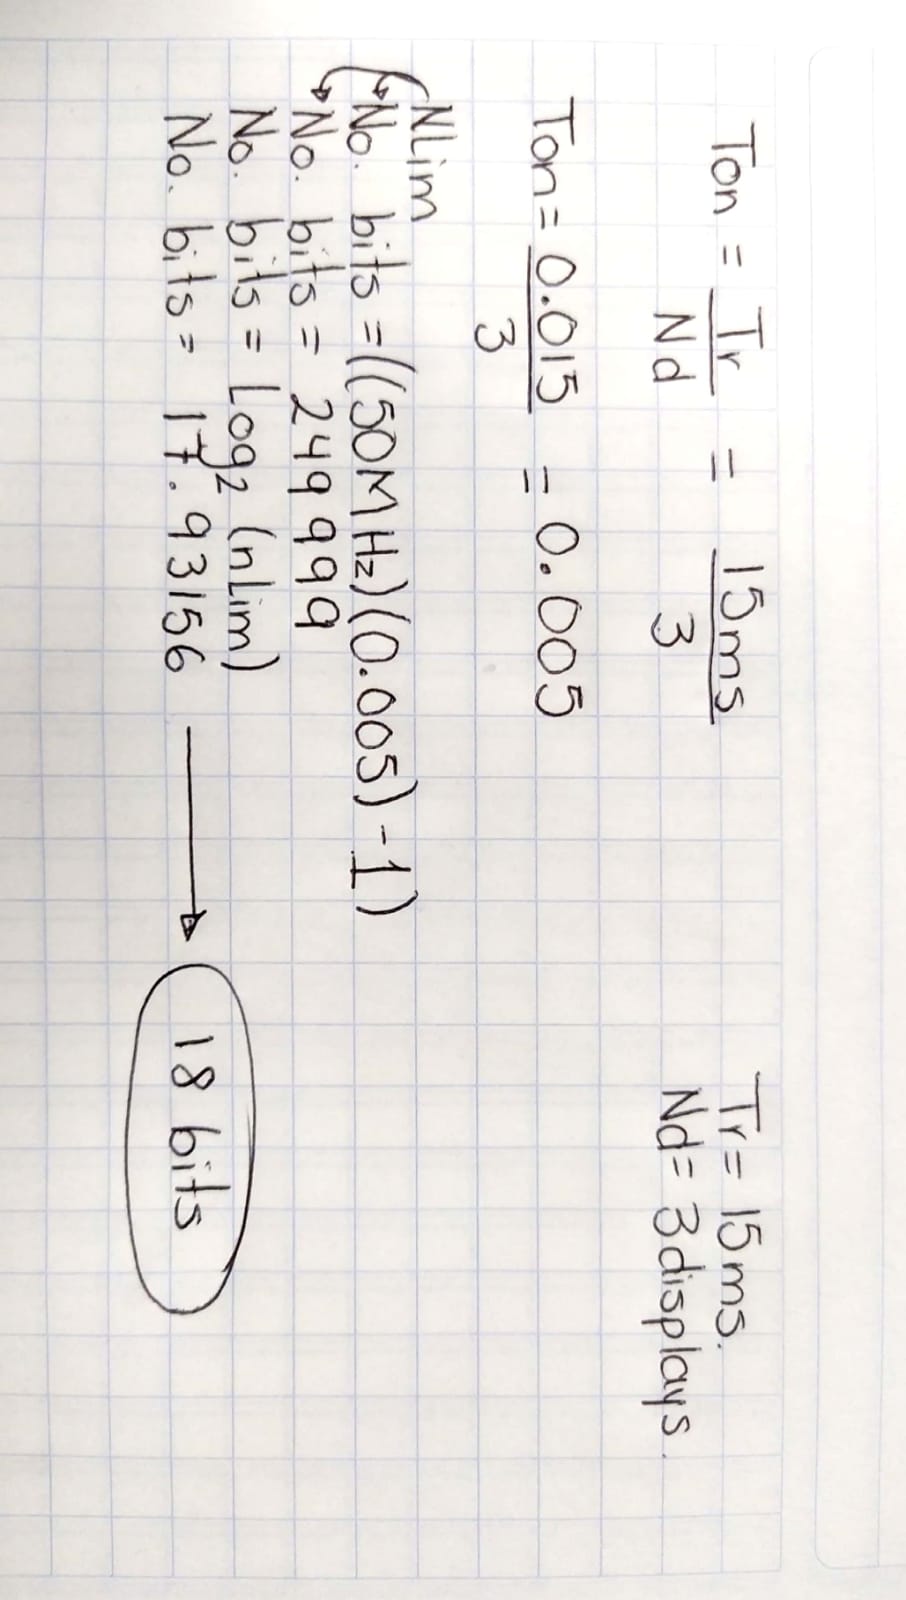 Ton = Tr / Nd = 15ms / 3
Tr = 15ms.
Nd = 3 displays.
Ton = 0.015 / 3 = 0.005
NLim
No. bits = ((50MHz)(0.005) - 1)
No. bits = 249 999
No. bits = Log2 (nLim)
No. bits = 17.93156 → 18 bits